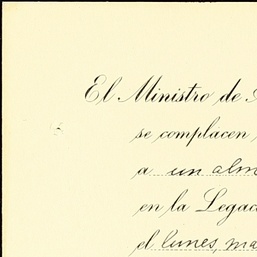 El Ministro de
se complacen
a un alm
en la Legac
el lunes, ma